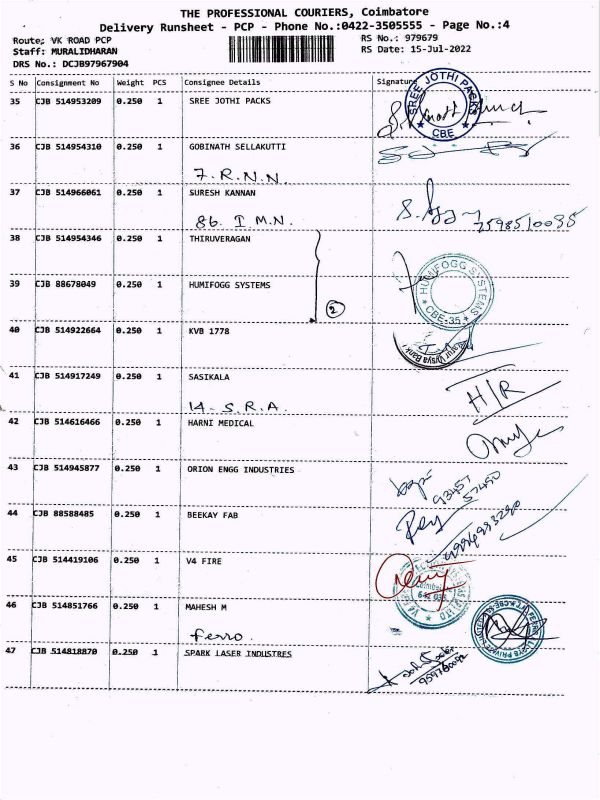 THE PROFESSIONAL COURIERS, Coimbatore
Delivery Runsheet - PCP - Phone No.:0422-3505555 - Page No.:4
Route: VK ROAD PCP
RS No.: 979679
Staff: MURALIDHARAN
RS Date: 15-Jul-2022
DRS No.: DCJB97967904
S No Consignment No Weight PCS Consignee Details Signature
35 CJB 514953209 0.250 1 SREE JOTHI PACKS
SREE JOTHI PACKS
CBE
36 CJB 514954310 0.250 1 GOBINATH SELLAKUTTI
7. R.N.N.
37 CJB 514966061 0.250 1 SURESH KANNAN
86. I.M.N.
7598510035
38 CJB 514954346 0.250 1 THIRUVERAGAN
39 CJB 88678049 0.250 1 HUMIFOGG SYSTEMS
2
HUMIFOGG SYSTEMS
CBE-35
40 CJB 514922664 0.250 1 KVB 1778
Vysya Bank
41 CJB 514917249 0.250 1 SASIKALA
14. S.R.A.
H/R
42 CJB 514616466 0.250 1 HARNI MEDICAL
43 CJB 514945877 0.250 1 ORION ENGG INDUSTRIES
93457
57450
44 CJB 88588485 0.250 1 BEEKAY FAB
45 CJB 514419106 0.250 1 V4 FIRE
46 CJB 514851766 0.250 1 MAHESH M
ferro.
47 CJB 514818870 0.250 1 SPARK LASER INDUSTRES